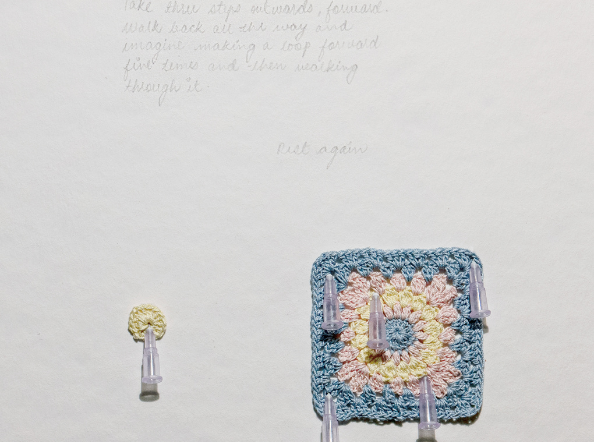 Take three steps outwards, forward.
Walk back all the way and
imagine making a loop forward
five times and then walking
through it
Rest again